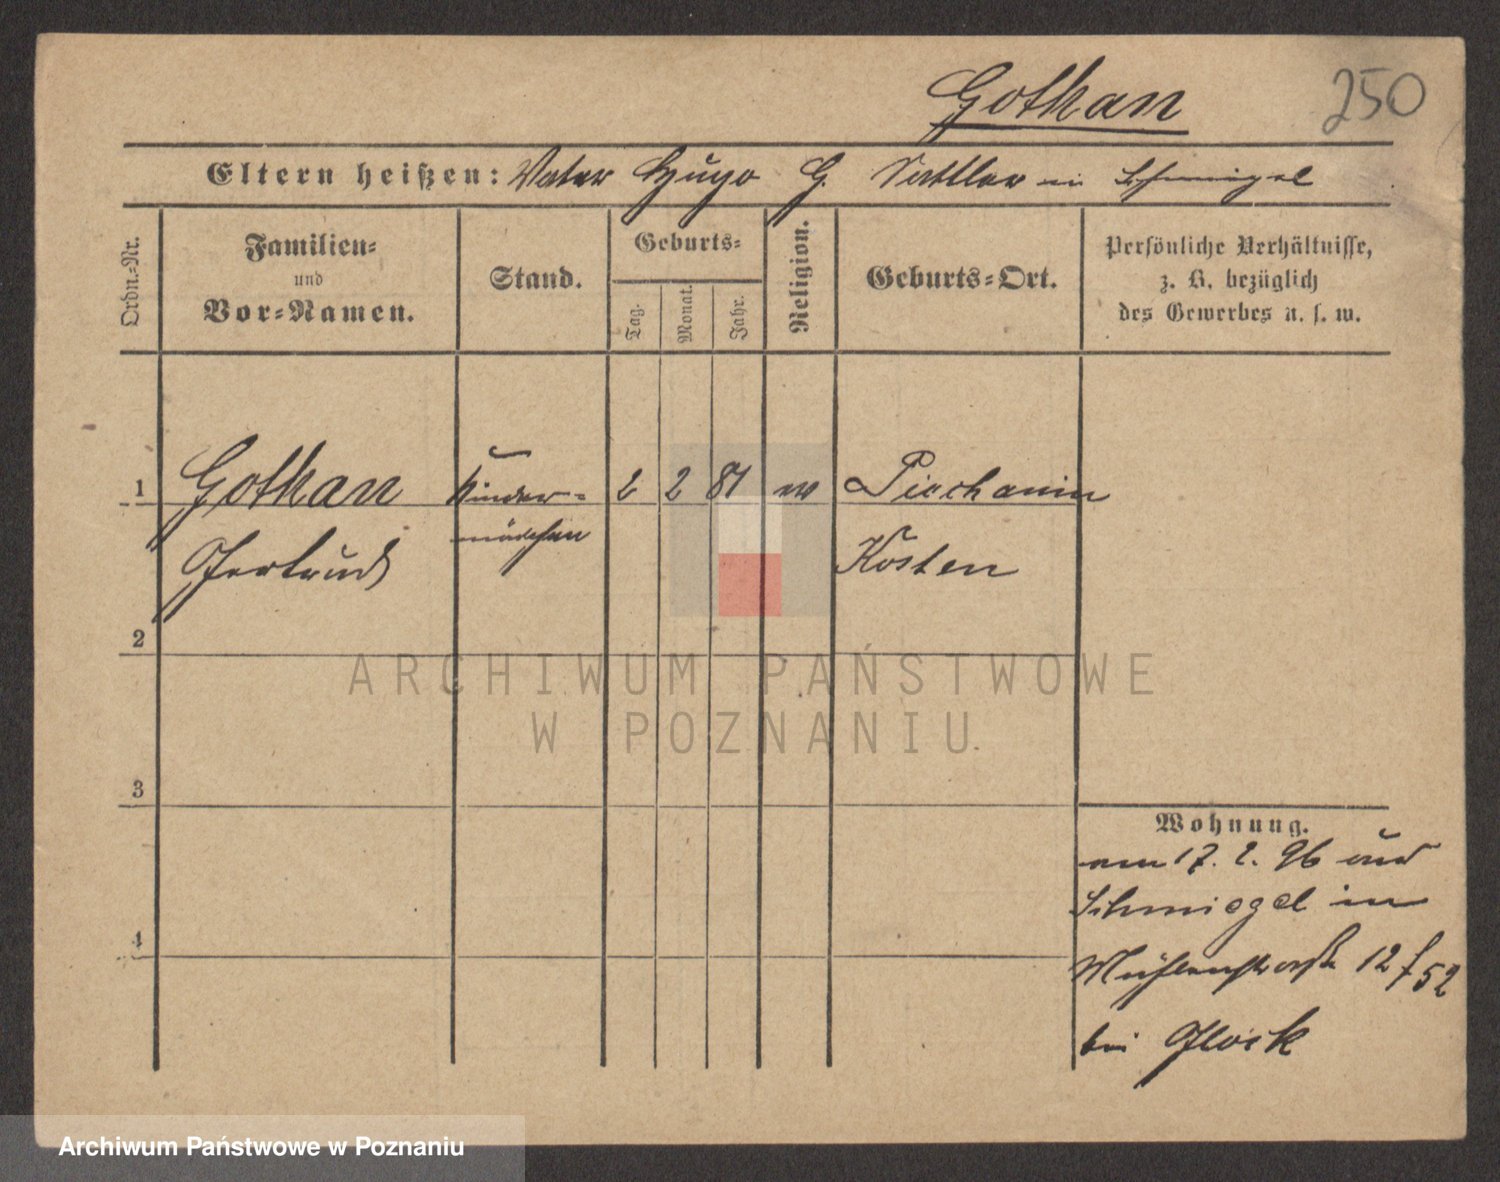 Gothan 250
Eltern heißen: Vater Hugo G. Sattler in Schmiegel
Ordn.-Nr.
Familien-
und
Vor-Namen.
Stand.
Geburts-
Tag.
Monat.
Jahr.
Religion.
Geburts-Ort.
Persönliche Verhältnisse,
z. B. bezüglich
des Gewerbes u. s. w.
1 Gothan Kinder- 2 2 81 Piechanin
mädchen
Gertrud Kosten
2
ARCHIWUM PAŃSTWOWE
W POZNANIU
3
Wohnung.
am 17. 2. 96 aus
Schmiegel in
Mühlenstraße 12 / 52
4
bei Glock
Archiwum Państwowe w Poznaniu